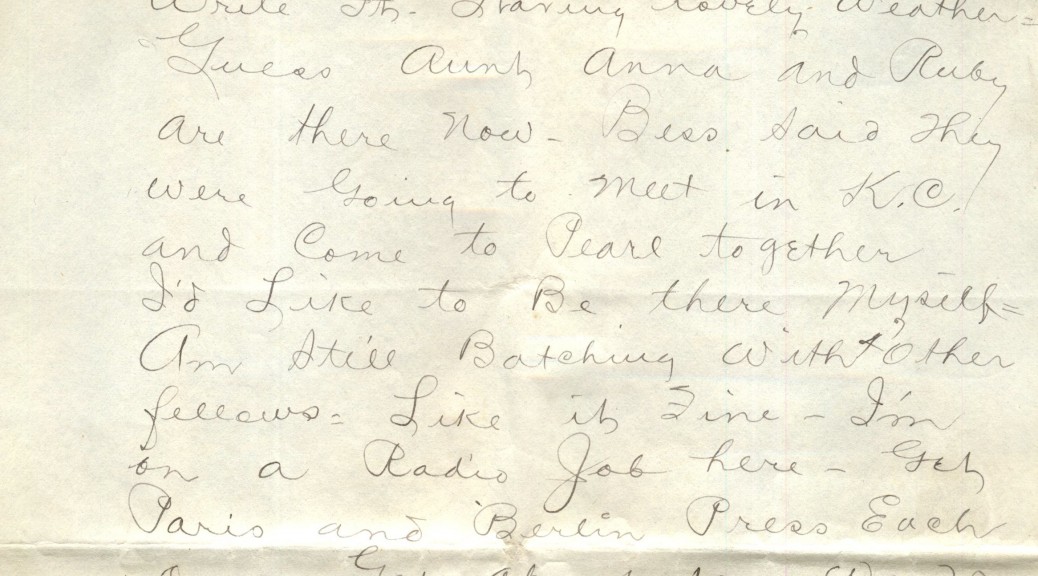 Write Having lovely Weather=
Guess Aunt Anna and Ruby
are there now- Bess. said they
were Going to meet in K.C.
and Come to Pearl together
I'd Like to Be there Myself=
Am Still Batching with other
fellows= Like it Fine - I'm
on a Radio Job here - Get
Paris and Berlin Press Each